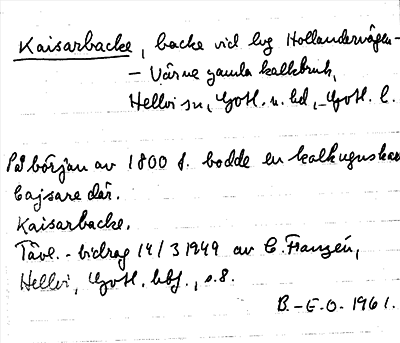 Kaisarbacke, backe vid lvg Hollandervägen-
- Värne gamla kalkbruk,
Hellvi sn, Gotl. n. hd, Gotl. l.
På början av 1800 t. bodde en kalkugnskar
Cajsare där.
Kaisarbacke.
Tävl.-bidrag 14/3 1949 av C. Franzén,
Hellvi, Gotl. hbf., s. 8.
B.-E.O. 1961.